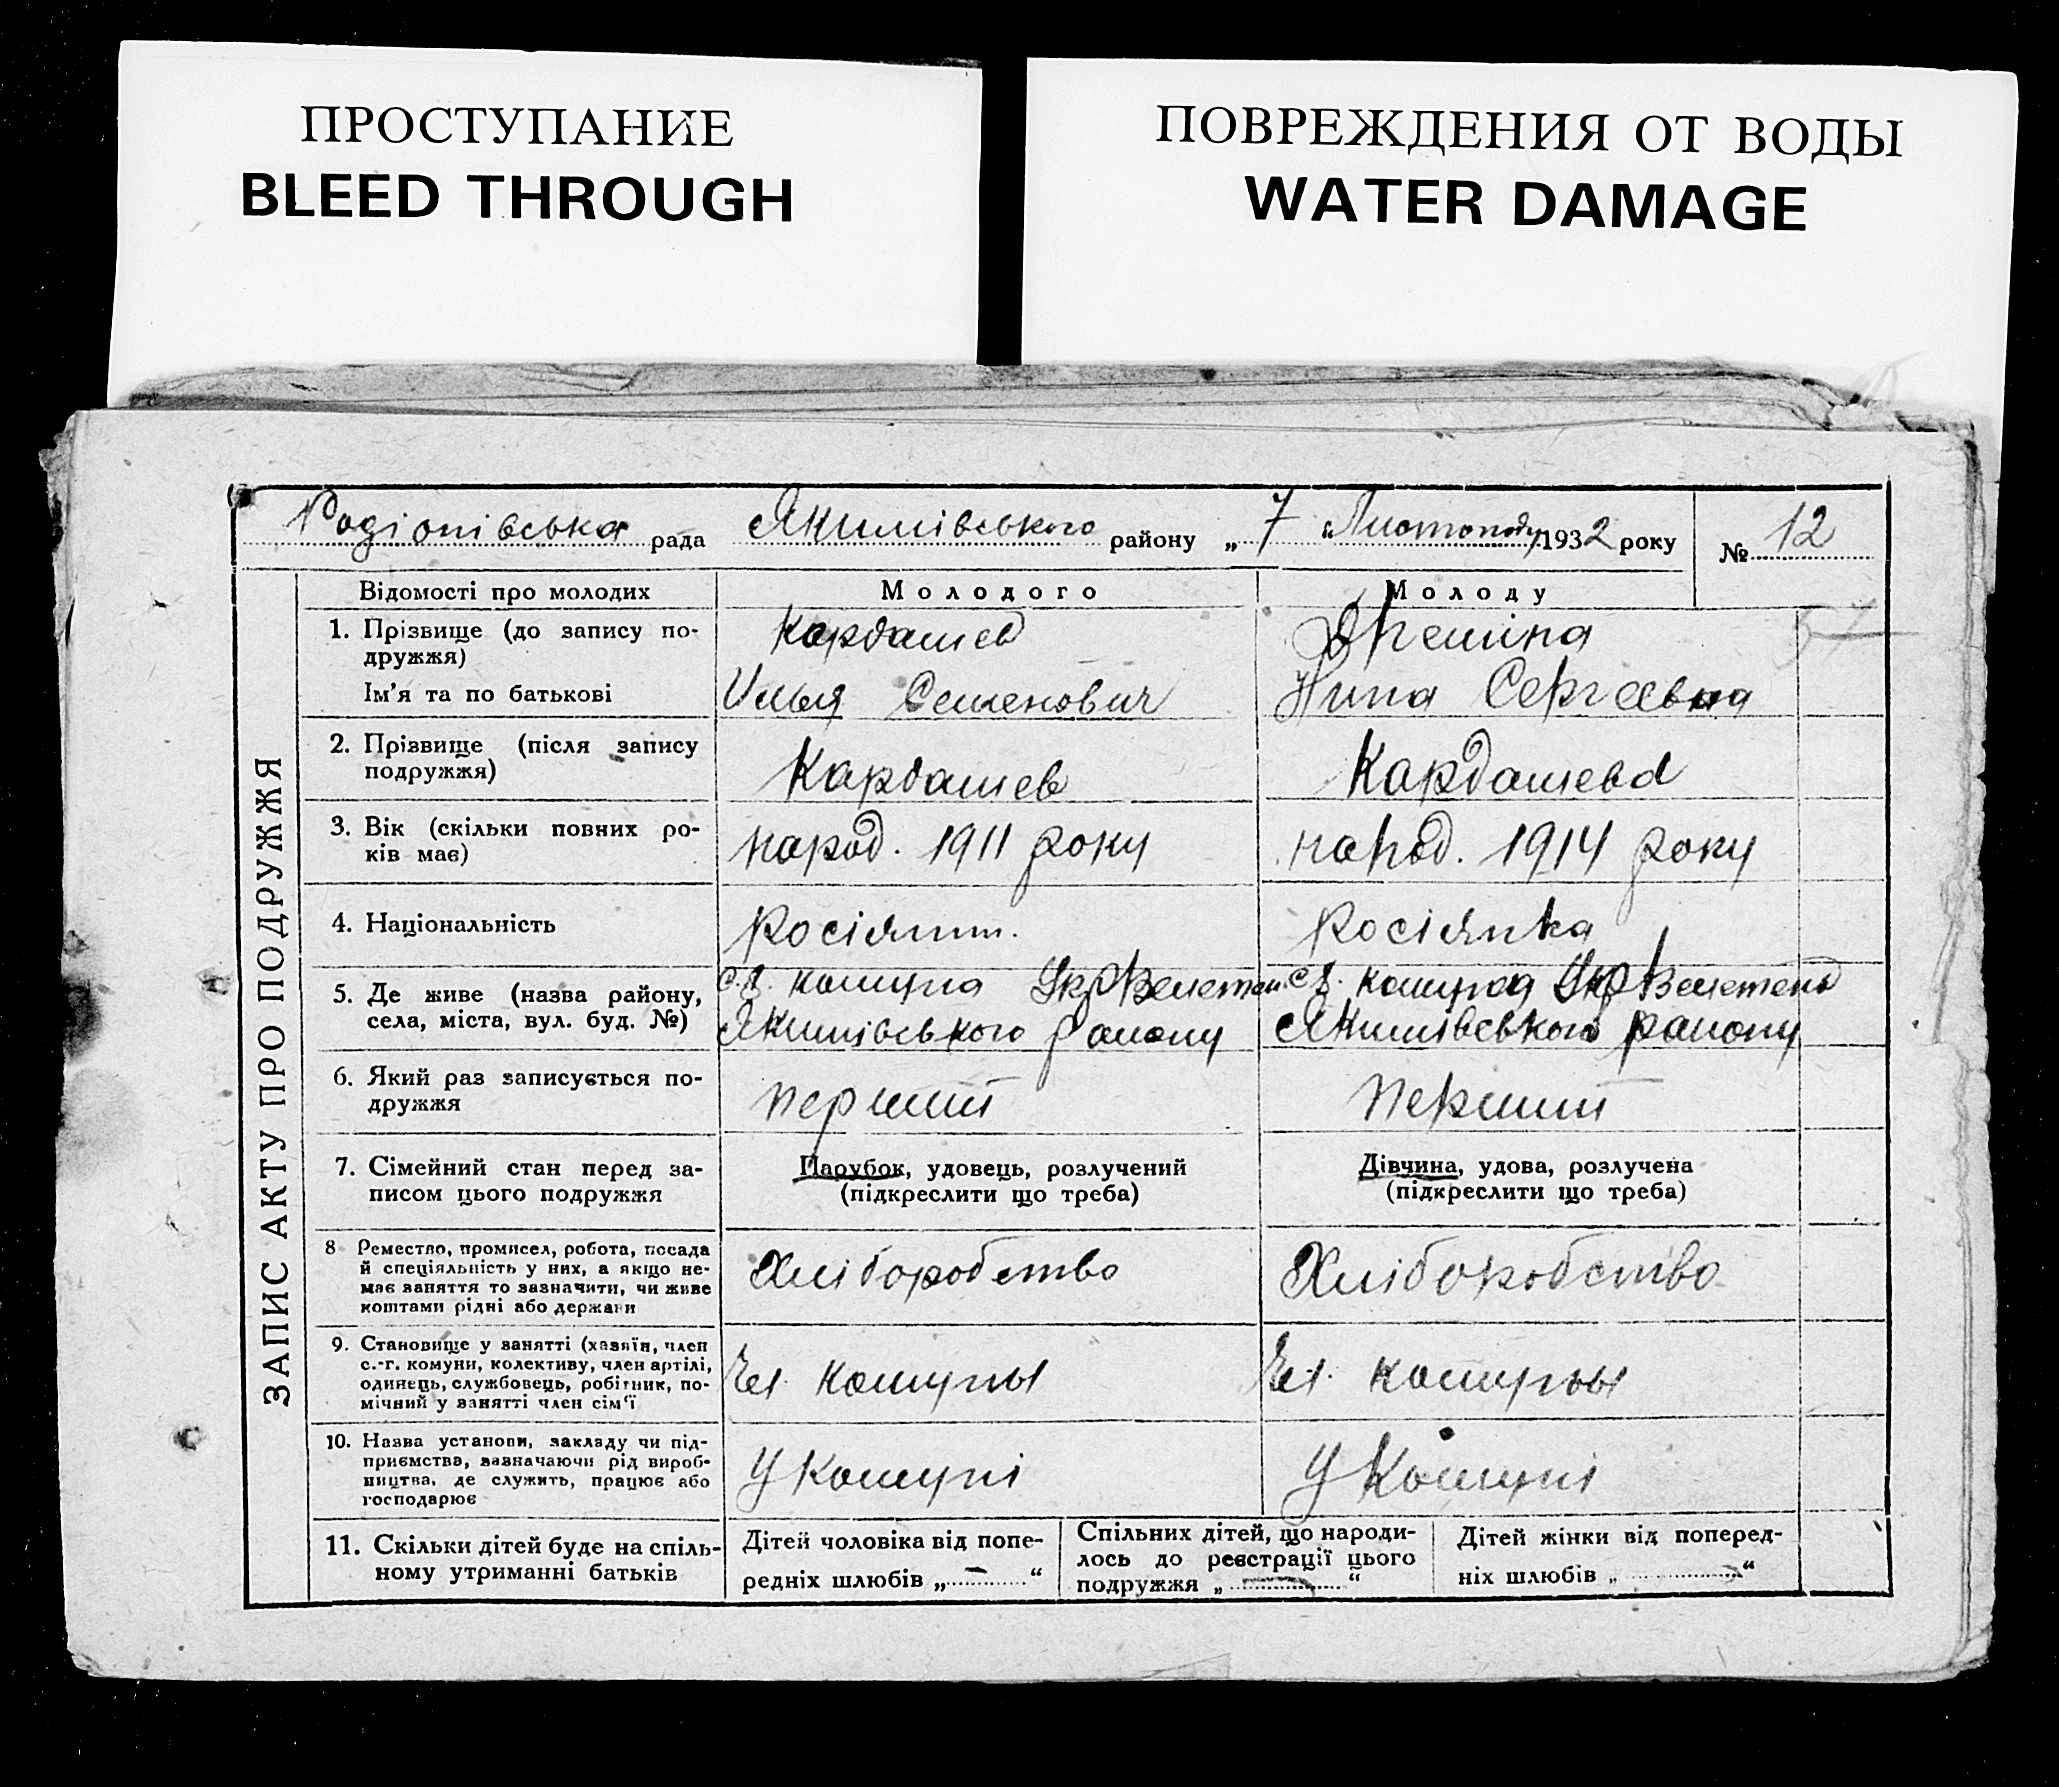 ПРОСТУПАНИЕ
BLEED THROUGH
ПОВРЕЖДЕНИЯ ОТ ВОДЫ
WATER DAMAGE
Родіонівська рада Якимівського району „ 7 “ Листопаду 1932 року № 12
ЗАПИС АКТУ ПРО ПОДРУЖЖЯ
Відомості про молодих Молодого Молоду
1. Прізвище (до запису по-
дружжя)
Кардашев
Ім’я та по батькові
Илья Семенович
Нина Сергеевна
2. Прізвище (після запису
подружжя)
Кардашев Кардашева
3. Вік (скільки повних ро-
ків має)
народ. 1911 року народ. 1914 року
4. Національність
Росіянин. Росіянка
5. Де живе (назва району,
села, міста, вул. буд. №)
комуна
Якимівського району
комуна
Якимівського району
6. Який раз записується по-
дружжя
перший перший
7. Сімейний стан перед за-
писом цього подружжя
Парубок, удовець, розлучений
(підкреслити що треба)
Дівчина, удова, розлучена
(підкреслити що треба)
8 Ремество, промисел, робота, посада
й спеціяльність у них, а якщо не-
має заняття то зазначити, чи живе
коштами рідні або держави
Хліборобство Хліборобство
9. Становище у занятті (хазяїн, член
с.-г. комуни, колективу, член артілі,
одинець, службовець, робітник, по-
мічний у занятті член сім’ї
Чл. комуны Чл. комуны
10. Назва установи, закладу чи під-
приємства, зазначаючи рід вироб-
ництва, де служить, працює або
господарює
У Комуні У Комуні
11. Скільки дітей буде на спіль-
ному утриманні батьків
Дітей чоловіка від попе-
редніх шлюбів „ — “
Спільних дітей, що народи-
лось до реєстрації цього
подружжя „ — “
Дітей жінки від поперед-
ніх шлюбів „ — “